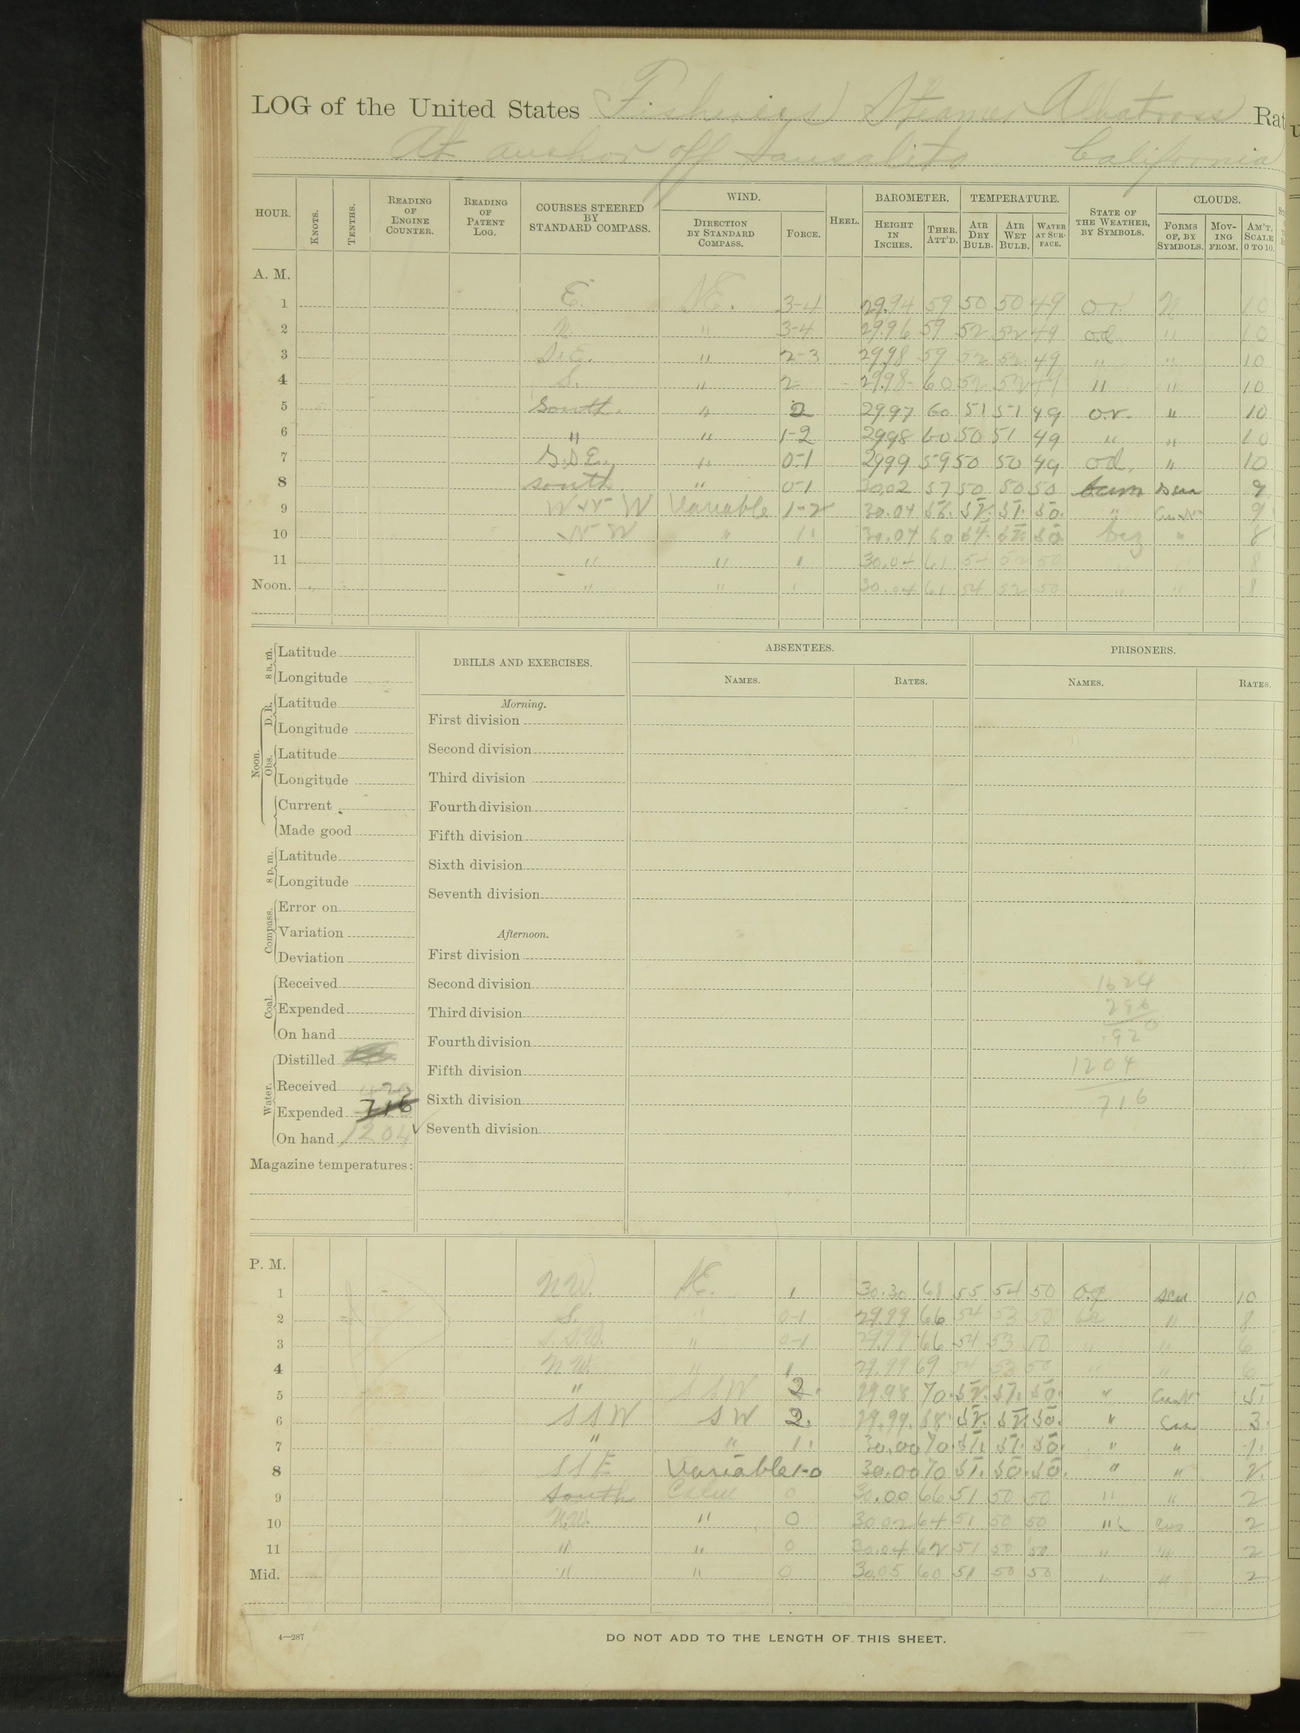 LOG of the United States Fisheries Steamer Albatross Rat
At anchor off Sausalito California
HOUR. KNOTS. TENTHS. READING OF ENGINE COUNTER. READING OF PATENT LOG. COURSES STEERED BY STANDARD COMPASS. WIND. DIRECTION BY STANDARD COMPASS. FORCE. HEEL. BAROMETER. HEIGHT IN INCHES. THER. ATT'D. TEMPERATURE. AIR DRY BULB. AIR WET BULB. WATER AT SURFACE. STATE OF THE WEATHER, BY SYMBOLS. CLOUDS. FORMS OF, BY SYMBOLS. MOVING FROM. AM'T. SCALE 0 TO 10.
A. M.
1 E. NE. 3-4 29.94 59 50 50 49 o.r. N 10
2 N. " 3-4 29.96 59 52 52 49 o.d. " 10
3 S.E. " 2-3 29.98 59 52 52 49 " " 10
4 S. " 2 29.98 60 52 52 49 " " 10
5 South. " 2 29.97 60 51 51 49 o.r. " 10
6 " " 1-2 29.98 60 50 51 49 " " 10
7 S.S.E. " 0-1 29.99 59 50 50 49 o.d. " 10
8 south " 0-1 30.02 57 50 50 50 9
9 W N W Variable 1-2 30.04 52. 51. 50. " Cu.N 9
10 N W " 1 30.04 60 54. 52 50 bcg " 8
11 " " 1 30.04 61 54 52 50 " 8
Noon. " " 1 30.04 61 54 52 50 " " 8
8 a. m. Latitude
Longitude
Noon. D. R. Latitude
Longitude
Obs. Latitude
Longitude
Current
Made good
8 p. m. Latitude
Longitude
Compass. Error on
Variation
Deviation
Coal. Received
Expended
On hand
Water. Distilled
Received
Expended 716
On hand 1204
Magazine temperatures:
DRILLS AND EXERCISES.
Morning.
First division
Second division
Third division
Fourth division
Fifth division
Sixth division
Seventh division
Afternoon.
First division
Second division
Third division
Fourth division
Fifth division
Sixth division
Seventh division
ABSENTEES.
NAMES. RATES.
PRISONERS.
NAMES. RATES.
1624
296
920
1204
716
P. M.
1 N.W. NE. 1 30.30 61 55 54 50 o.g. 10
2 S. " 0-1 29.99 66 54 53 50 " 8
3 S.S.W. " 0-1 29.99 66 54 53 50 " " 6
4 N.W. " 1 29.99 69 54 53 50 " " 6
5 " S S W 2. 29.98 70. 52. 51. 50. " Cu.N 5
6 S S W S W 2. 29.99. 68 52. 52. 50. " Cu 3.
7 " " 1. 30.00 70. 51. 51. 50. " " 1.
8 S S E Variable 1-0 30.00 70 51. 50. 50. " " 2.
9 South Calm 0 30.00 66 51 50 50 " " 2
10 N.W. " 0 30.02 64 51 50 50 " 2
11 " " 0 30.04 62 51 50 50 " " 2
Mid. " " 0 30.05 60 51 50 50 " " 2
4—287
DO NOT ADD TO THE LENGTH OF THIS SHEET.